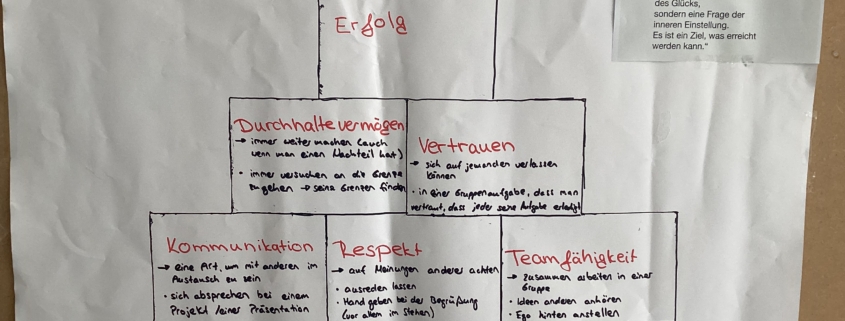 des Glücks,
sondern eine Frage der
inneren Einstellung.
Es ist ein Ziel, was erreicht
werden kann."
Erfolg
Durchhaltevermögen
→ immer weiter machen (auch
wenn man einen Nachteil hat)
• immer versuchen an die Grenze
zu gehen → seine Grenzen finden
Vertrauen
→ sich auf jemanden verlassen
können
• in einer Gruppenaufgabe, dass man
vertraut, dass jeder seine Aufgabe erledigt
Kommunikation
→ eine Art, um mit anderen im
Austausch zu sein
• sich absprechen bei einem
Projekt / einer Präsentation
Respekt
→ auf Meinungen anderer achten
• ausreden lassen
• Hand geben bei der Begrüßung
(vor allem im Stehen)
Teamfähigkeit
→ zusammen arbeiten in einer
Gruppe
• Ideen anderen anhören
• Ego hinten anstellen